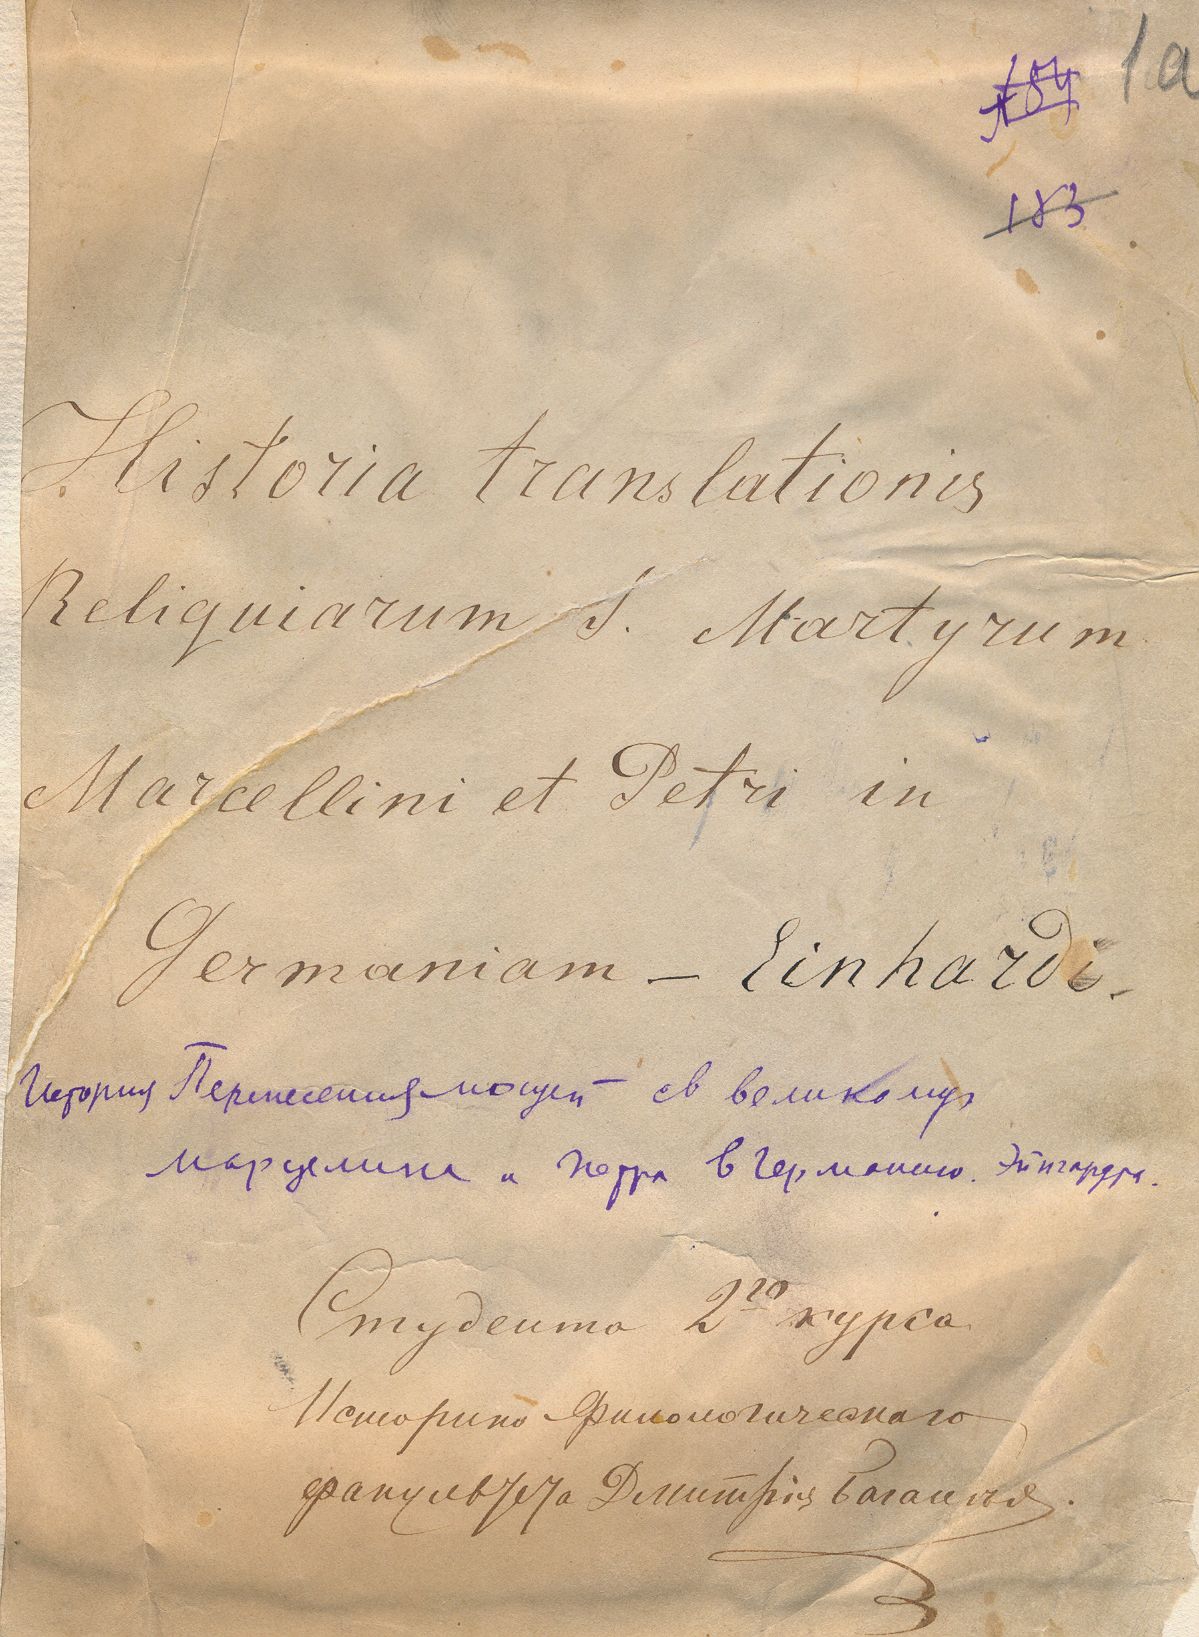 1а
184
183
Historia translationis
Reliquiarum S. Martyrum
Marcellini et Petri in
Germaniam — Einhardi.
История Перенесения мощей св великому
марцелина и петра в Германию. Эйнгарда.
Студента 2го курса
Историко Филологическаго
факультета Дмитрія Багалѣя.